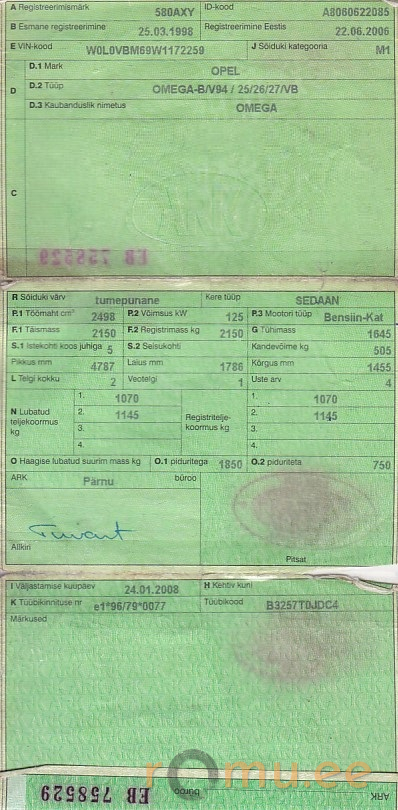 A Registreerimismärk 580AXY ID-kood A8060622085
B Esmane registreerimine 25.03.1998 Registreerimine Eestis 22.06.2006
E VIN-kood W0L0VBM69W1172259 J Sõiduki kategooria M1
D.1 Mark OPEL
D D.2 Tüüp OMEGA-B/V94 / 25/26/27/VB
D.3 Kaubanduslik nimetus OMEGA
C
ARK
EB 758529
R Sõiduki värv tumepunane Kere tüüp SEDAAN
P.1 Töömaht cm³ 2498 P.2 Võimsus kW 125 P.3 Mootori tüüp Bensiin-Kat
F.1 Täismass 2150 F.2 Registrimass kg 2150 G Tühimass 1645
S.1 Istekohti koos juhiga 5 S.2 Seisukohti Kandevõime kg 505
Pikkus mm 4787 Laius mm 1786 Kõrgus mm 1455
L Telgi kokku 2 Veotelgi 1 Uste arv 4
1. 1070 1. 1070
N Lubatud teljekoormus kg 2. 1145 Registritelje-koormus kg 2. 1145
3. 3.
4. 4.
O Haagise lubatud suurim mass kg O.1 piduritega 1850 O.2 piduriteta 750
ARK Pärnu büroo
Allkiri Pitsat
I Väljastamise kuupäev 24.01.2008 H Kehtiv kuni
K Tüübikinnituse nr e1*96/79*0077 Tüübikood B3257T0JDC4
Märkused
romu.ee
EB 758529 büroo ARK